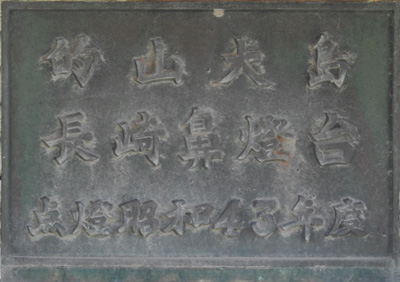 的山大島
長崎鼻燈台
点燈昭和43年度